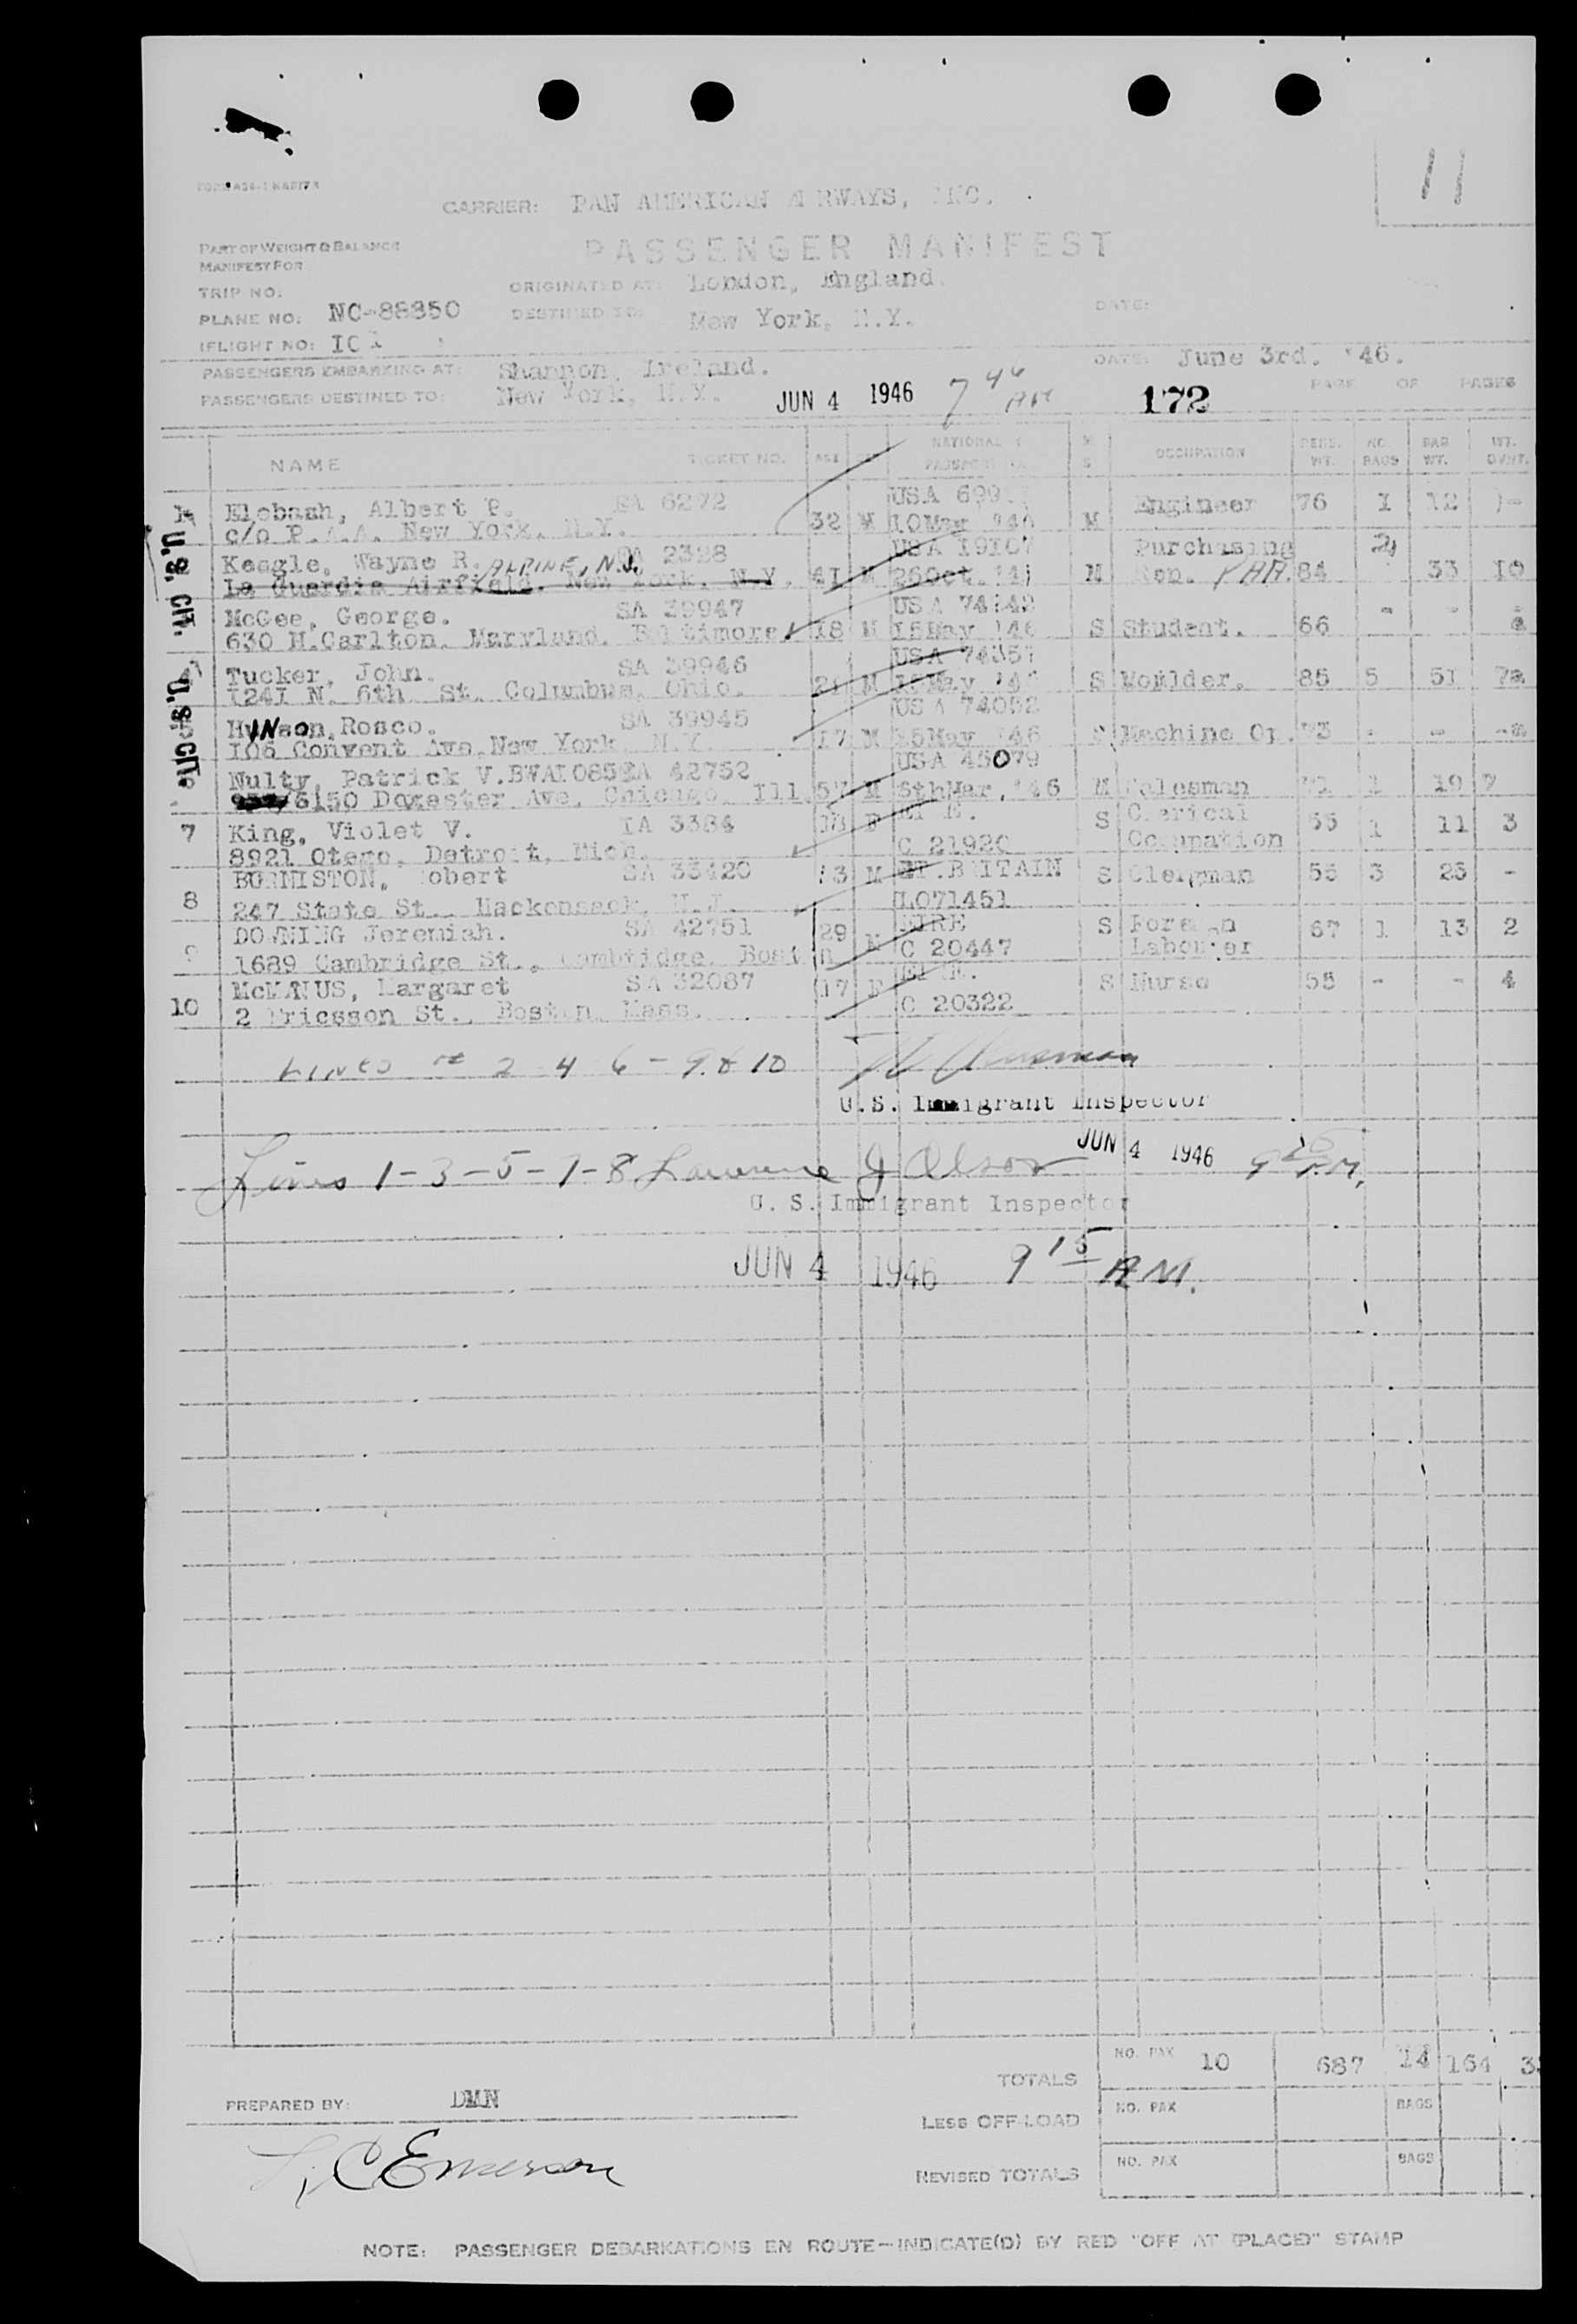 11
CARRIER: PAN AMERICAN AIRWAYS, INC.
PART OF WEIGHT & BALANCE
MANIFEST FOR
PASSENGER MANIFEST
TRIP NO:
ORIGINATED AT: London, England.
PLANE NO: NC-88850
DESTINED TO: New York, N.Y.
DATE:
FLIGHT NO: IOI
PASSENGERS EMBARKING AT: Shannon, Ireland.
DATE: June 3rd. '46.
PASSENGERS DESTINED TO: New York, N.Y.
JUN 4 1946 7 46 AM
172
PAGE OF PAGES
NAME TICKET NO. AGE SEX NATIONAL PASSPORT M S OCCUPATION PERS. WT. NO. BAGS BAG WT. WT. OVHT.
Albert P. 6272 USA
c/o P.A.A. New York, N.Y. 32 M M Engineer 76 1 12
Keagle, Wayne R. ALPINE, N.J. 2328 USA 19107 Purchasing
La Guardia Airfield. New York. N.Y. 41 M 26Oct. M 84 33 10
McGee, George. SA 39947 USA
630 N.Carlton. Maryland. Baltimore 18 M 15May '46 S Student. 66
Tucker, John. SA 39946 USA 74357
1241 N. 6th St. Columbus, Ohio. 21 M S Moulder. 85 5 51
Rosco. SA 39945 USA
106 Convent Ave. New York N.Y. 17 M 15May '46 S Machine Op. 73
Nulty, Patrick V. 42752 USA 45079
6150 Dorester Ave. Chicago. Ill 57 M 5thMar.'46 M Salesman 1 19 7
7 King, Violet V. TA 3384 18 F S Clerical 55 1 11 3
8921 Otego, Detroit, Mich. C 21920 Occupation
BURNISTON, Robert SA 33420 M GT.BRITAIN S Clergman 55 3 25 -
8 247 State St., Hackensack, N.J. L071451
DOWNING Jeremiah. SA 42751 29 M EIRE S Foreign 67 1 13 2
9 1689 Cambridge St., Cambridge, Boston C 20447 Labourer
McMANUS, Margaret SA 32087 17 F EIRE. S Nurse 55 - - 4
10 2 Ericsson St., Boston, Mass. C 20322
U.S. CIT.
U.S. CIT.
LINES 2 4 6 - 9 & 10
U.S. Immigrant Inspector
JUN 4 1946
Lines 1-3-5-7-8 Lawrence J Olson
U. S. Immigrant Inspector
JUN 4 1946 9 15 A.M.
TOTALS NO. PAX 10 687 14 164
PREPARED BY: DMN
LESS OFF-LOAD NO. PAX BAGS
L.C Emerson
REVISED TOTALS NO. PAX BAGS
NOTE: PASSENGER DEBARKATIONS EN ROUTE—INDICATE(D) BY RED "OFF AT (PLACE)" STAMP